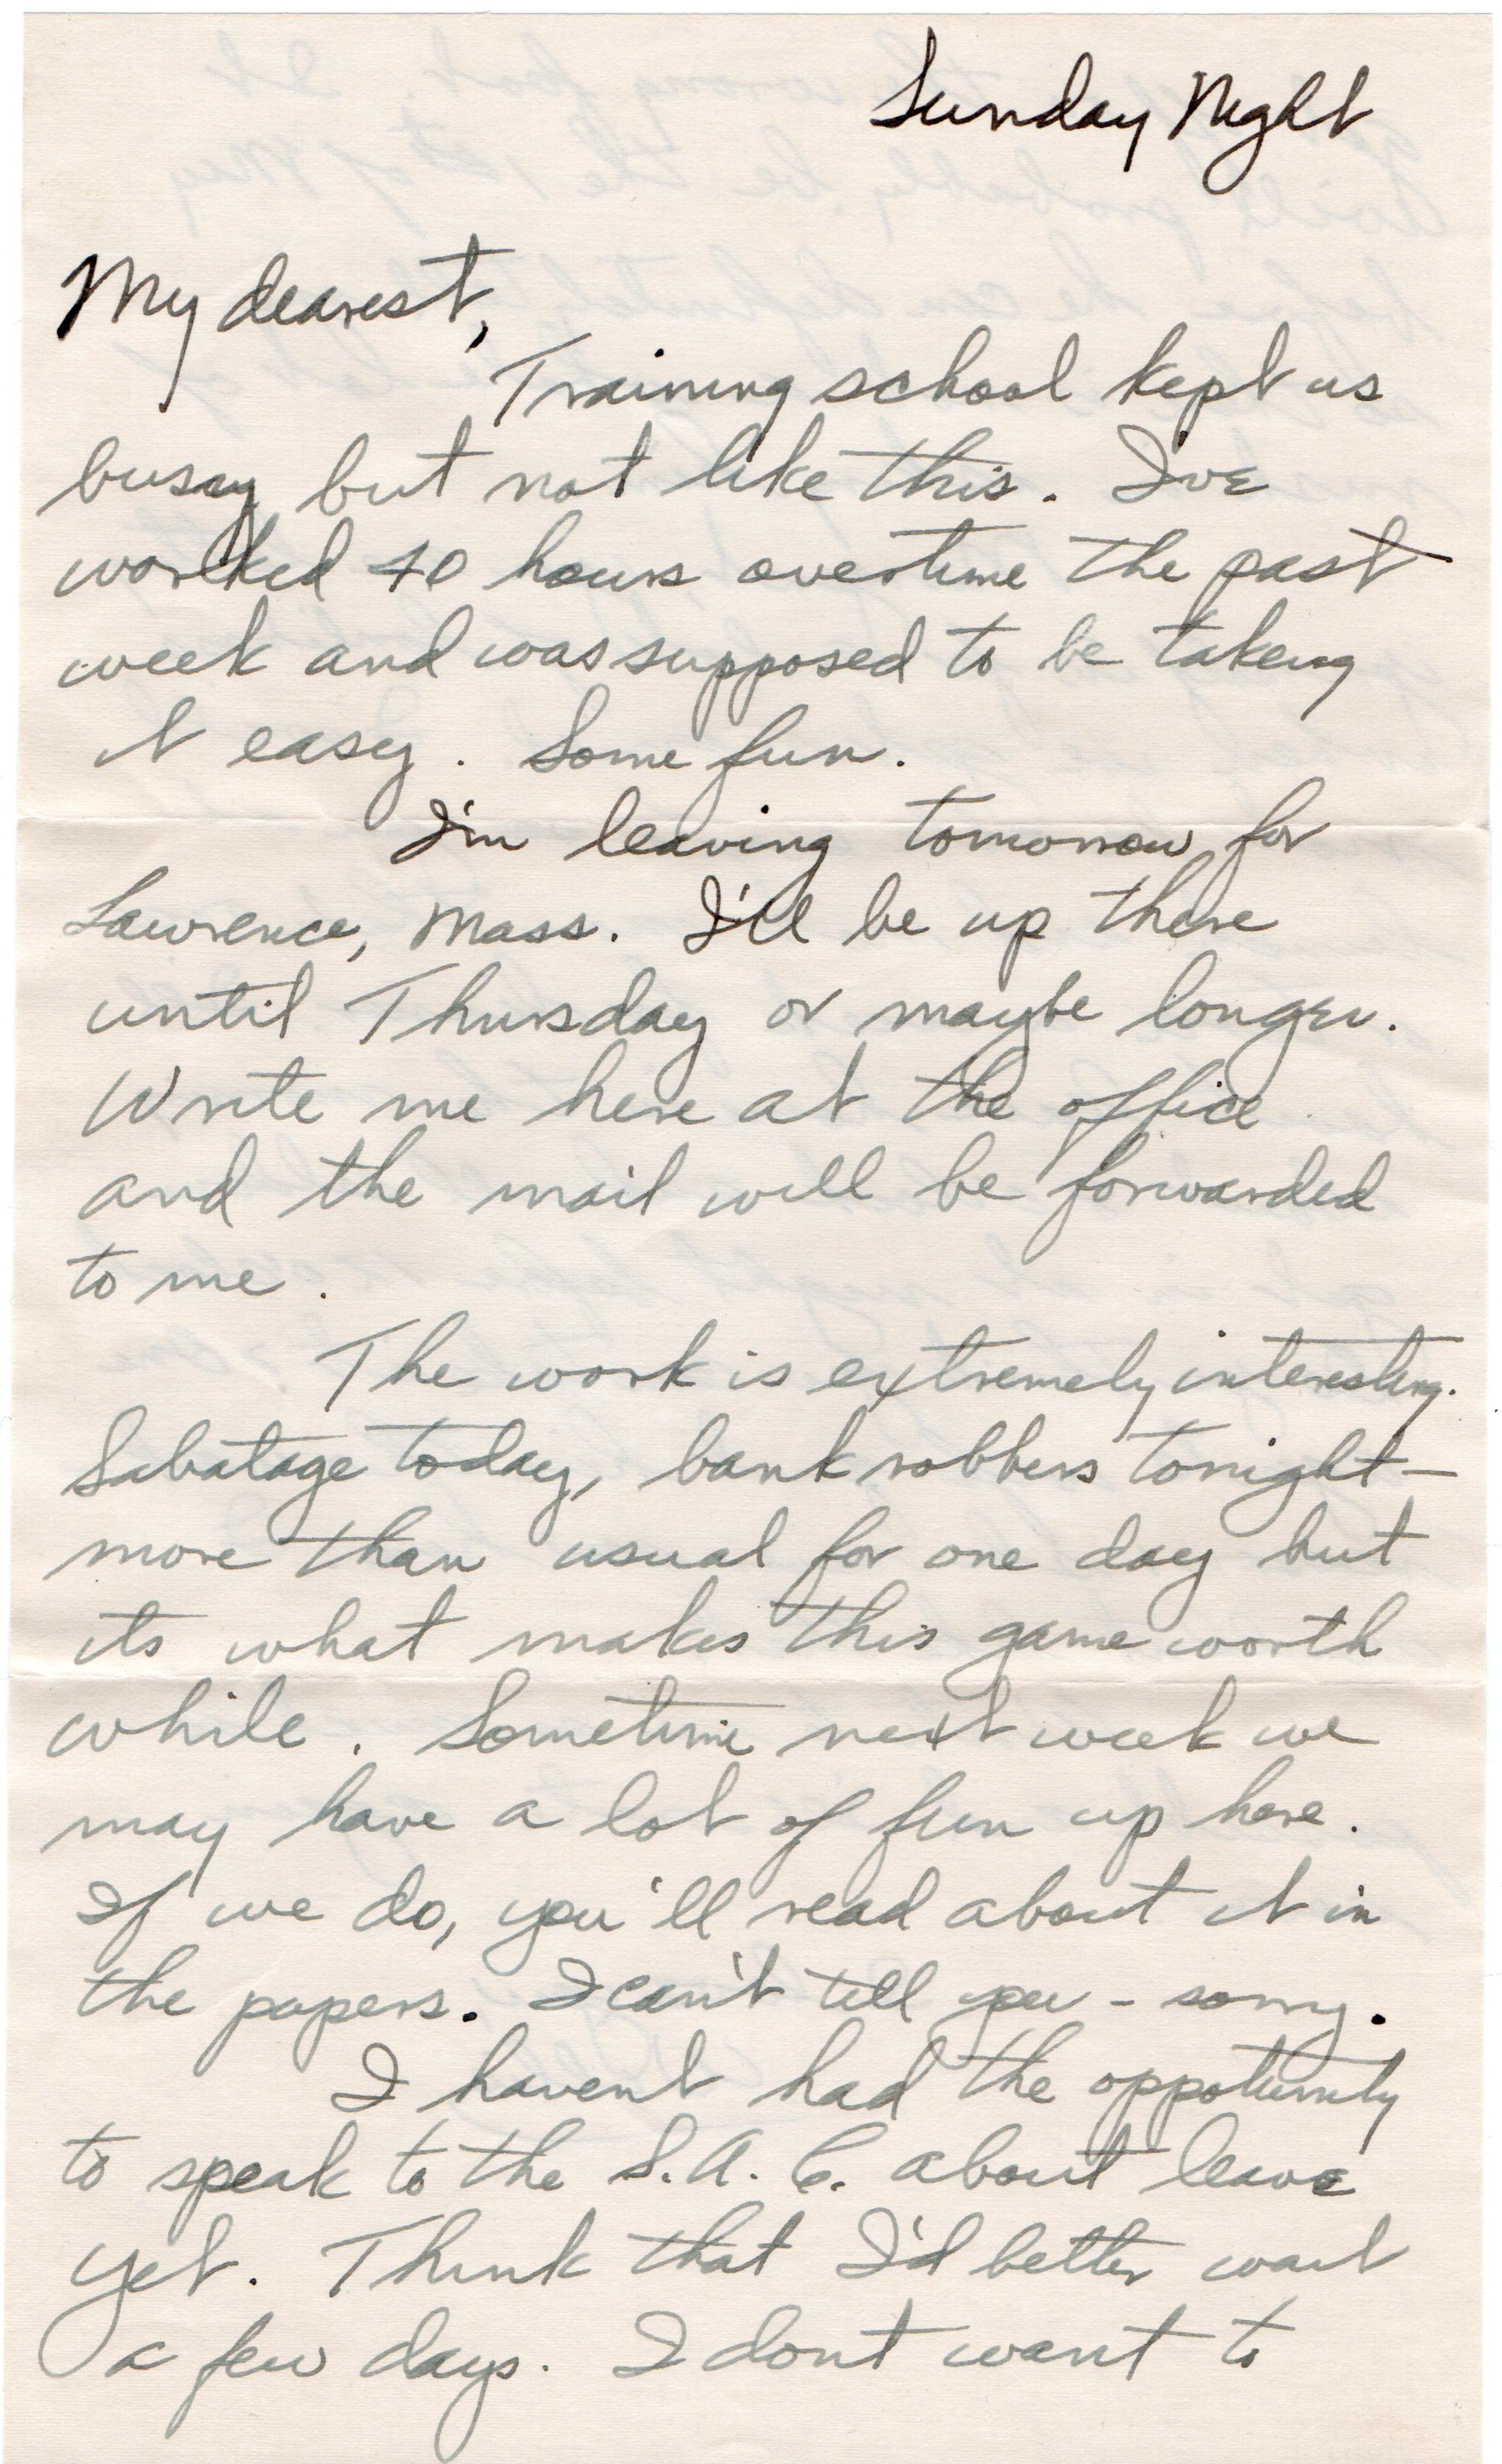 Sunday Night
My dearest,
Training school kept us
busy but not like this. I've
worked 40 hours overtime the past
week and was supposed to be taking
it easy. Some fun.
I'm leaving tomorrow for
Lawrence, Mass. I'll be up there
until Thursday or maybe longer.
Write me here at the office
and the mail will be forwarded
to me.
The work is extremely interesting.
Sabatage today, bank robbers tonight –
more than usual for one day but
its what makes this game worth
while. Sometime next week we
may have a lot of fun up here.
If we do, you'll read about it in
the papers. I can't tell you - sorry.
I havent had the oppotunity
to speak to the S.A.C. about leave
yet. Think that I'd better wait
a few days. I dont want to